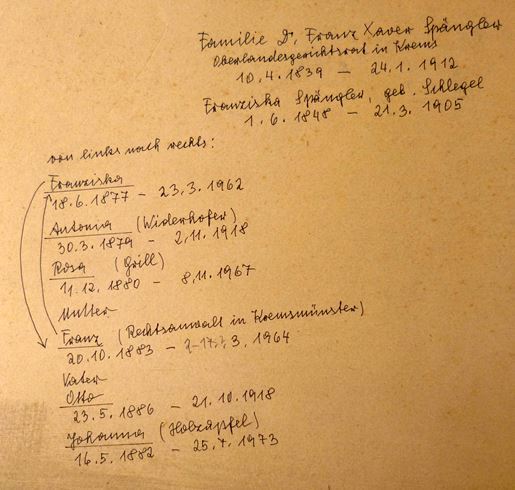 Familie Dr. Franz Xaver Spängler
Oberlandesgerichtsrat in Krems
10.4.1839 – 24.1.1912
Franziska Spängler, geb. Schlegel
1.6.1848 – 21.3.1905
von links nach rechts:
Franziska
18.6.1877 – 23.3.1962
Antonia (Widerhofer)
30.3.1879 – 2.11.1918
Rosa (Grill)
11.12.1880 – 8.11.1967
Mutter
Franz (Rechtsanwalt in Kremsmünster)
20.10.1883 – 3.1964
Vater
Otto
23.5.1886 – 21.10.1918
Johanna (Holzapfel)
16.5.1882 – 25.7.1973